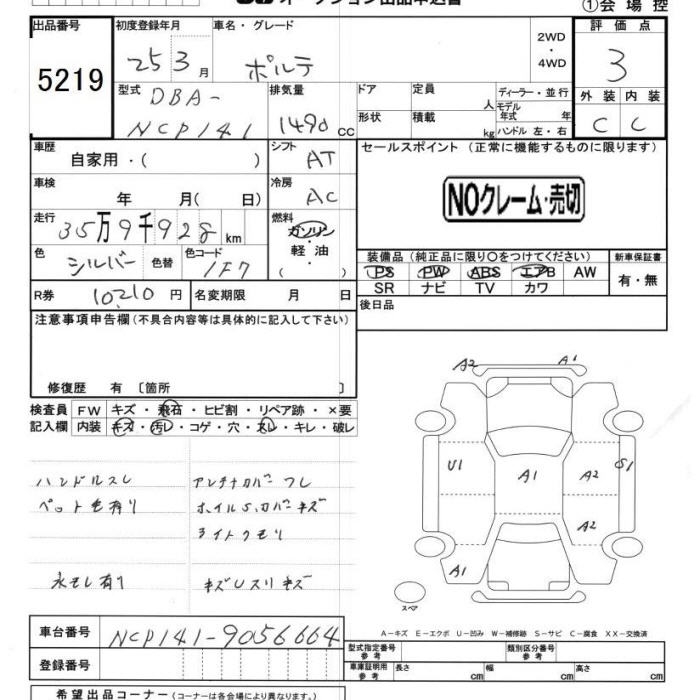 オークション出品申込書
①会場控
出品番号
5219
初度登録年月
25 3月
車名・グレード
ポルテ
2WD
・
4WD
評価点
3
外装 内装
C C
型式
DBA-
NCP141
排気量
1490 cc
ドア
定員
人
形状
積載
kg
ディーラー・並行
モデル
年式 年
ハンドル 左・右
車歴
自家用・( )
シフト
AT
セールスポイント (正常に機能するものに限ります)
NOクレーム・売切
車検
年 月( 日)
冷房
AC
走行
35万9千928 km
燃料
ガソリン
軽・油
( )
色
シルバー
色替
色コード
1F7
装備品 (純正品に限り○をつけてください)
PS PW ABS エアB AW
SR ナビ TV カワ
新車保証書
有・無
R券
10,210円
名変期限 月 日
後日品
注意事項申告欄 (不具合内容等は具体的に記入して下さい)
修復歴 有 〔箇所 〕
検査員
記入欄
FW キズ・飛石・ヒビ割・リペア跡・×要
内装 キズ・汚レ・コゲ・穴・スレ・キレ・破レ
ハンドルスレ アンテナカバーフレ
ペット毛有り ホイルS,カバーキズ
ライトクモリ
水モレ有り キズUスリキズ
A2 A1
U1 A1 A2 S1
A2
A1
スペア
A-キズ E-エクボ U-凹み W-補修跡 S-サビ C-腐食 XX-交換済
車台番号
NCP141-9056664
登録番号
型式指定番号
参考
類別区分番号
参考
車庫証明用
参考
長さ cm
幅 cm
高さ cm
希望出品コーナー (コーナーは各会場により異なります。)